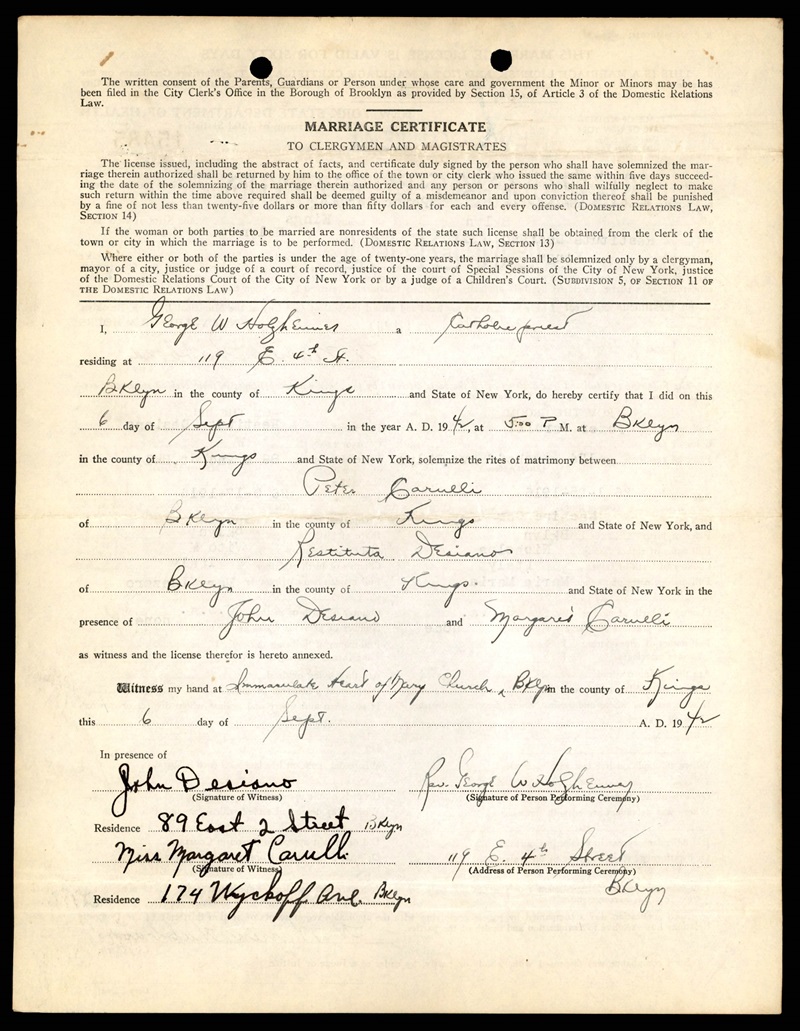 The written consent of the Parents, Guardians or Person under whose care and government the Minor or Minors may be has
been filed in the City Clerk's Office in the Borough of Brooklyn as provided by Section 15, of Article 3 of the Domestic Relations
Law.
MARRIAGE CERTIFICATE
TO CLERGYMEN AND MAGISTRATES
The license issued, including the abstract of facts, and certificate duly signed by the person who shall have solemnized the mar-
riage therein authorized shall be returned by him to the office of the town or city clerk who issued the same within five days succeed-
ing the date of the solemnizing of the marriage therein authorized and any person or persons who shall wilfully neglect to make
such return within the time above required shall be deemed guilty of a misdemeanor and upon conviction thereof shall be punished
by a fine of not less than twenty-five dollars or more than fifty dollars for each and every offense. (DOMESTIC RELATIONS LAW,
SECTION 14)
If the woman or both parties to be married are nonresidents of the state such license shall be obtained from the clerk of the
town or city in which the marriage is to be performed. (DOMESTIC RELATIONS LAW, SECTION 13)
Where either or both of the parties is under the age of twenty-one years, the marriage shall be solemnized only by a clergyman,
mayor of a city, justice or judge of a court of record, justice of the court of Special Sessions of the City of New York, justice
of the Domestic Relations Court of the City of New York or by a judge of a Children's Court. (SUBDIVISION 5, OF SECTION 11 OF
THE DOMESTIC RELATIONS LAW)
I, George W a Catholic priest
residing at 119 E. 4th St.
Bklyn in the county of Kings and State of New York, do hereby certify that I did on this
6 day of Sept in the year A. D. 1942, at 5:00 P M. at Bklyn
in the county of Kings and State of New York, solemnize the rites of matrimony between
Peter Carulli
of Bklyn in the county of Kings and State of New York, and
Restituta Desiano
of Bklyn in the county of Kings. and State of New York in the
presence of John Desiano and Margaret Carulli
as witness and the license therefor is hereto annexed.
Witness my hand at Immaculate Heart of Mary Church, Bklyn in the county of Kings
this 6 day of Sept. A. D. 1942
In presence of
John Desiano Rev. George W
(Signature of Witness) (Signature of Person Performing Ceremony)
Residence 89 East 2 Street Bklyn
Miss Margaret Carulli 119 E. 4th Street
(Signature of Witness) (Address of Person Performing Ceremony)
Bklyn
Residence 174 Wyckoff Ave. Bklyn